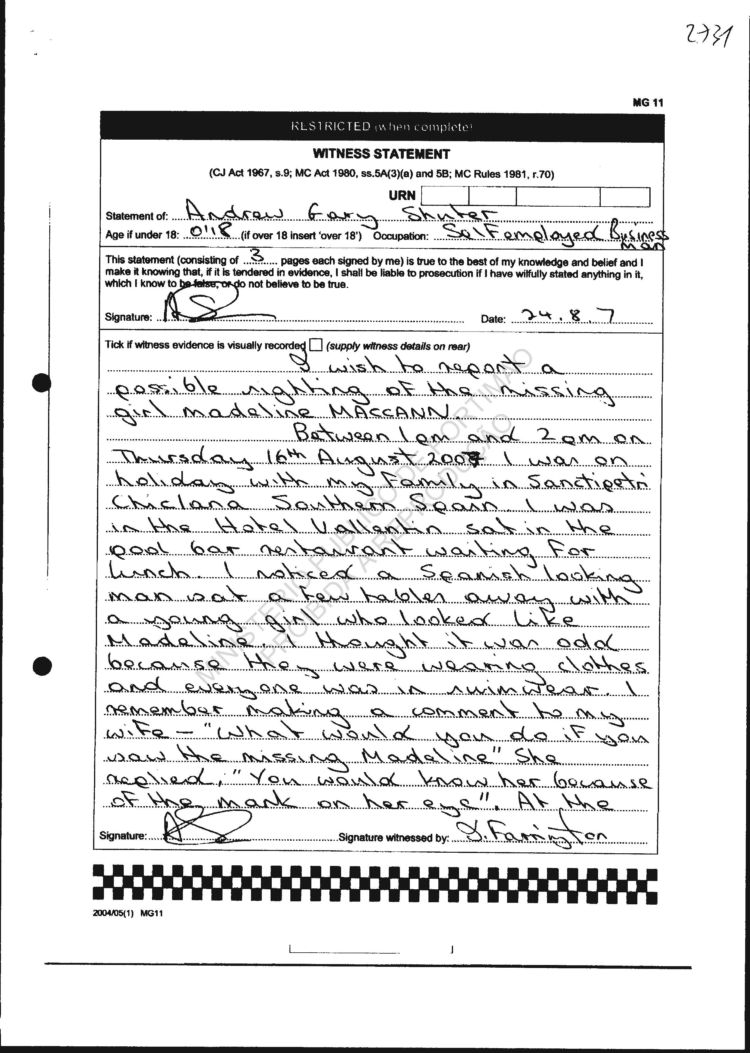 2731
MG 11
RESTRICTED (when complete)
WITNESS STATEMENT
(CJ Act 1967, s.9; MC Act 1980, ss.5A(3)(a) and 5B; MC Rules 1981, r.70)
URN
Statement of: Andrew Gary Shuter
Age if under 18: O'18 (if over 18 insert 'over 18') Occupation: Self employed Business man
This statement (consisting of 3 pages each signed by me) is true to the best of my knowledge and belief and I
make it knowing that, if it is tendered in evidence, I shall be liable to prosecution if I have wilfully stated anything in it,
which I know to be false, or do not believe to be true.
Signature: Date: 24.8.7
Tick if witness evidence is visually recorded (supply witness details on rear)
I wish to report a
possible sighting of the missing
girl madeline MACCANN.
Between 1pm and 2pm on
Thursday 16th August 2007 I was on
holiday with my Family in Sanctipetri
Chiclana Southern Spain. I was
in the Hotel Vallentin sat in the
pool bar restaurant waiting For
lunch. I noticed a Spanish looking
man sat a few tables away with
a young girl who looked like
Madeline. I thought it was odd
because they were wearing clothes
and everyone was in swimwear. I
remember making a comment to my
wife - "What would you do if you
saw the missing Madeline" She
replied, "You would know her because
of the mark on her eye". At the
Signature: Signature witnessed by: J. Farrington
2004/05(1) MG11
MINISTÉRIO PÚBLICO DE PORTIMÃO
PROIBIDA A REPRODUÇÃO